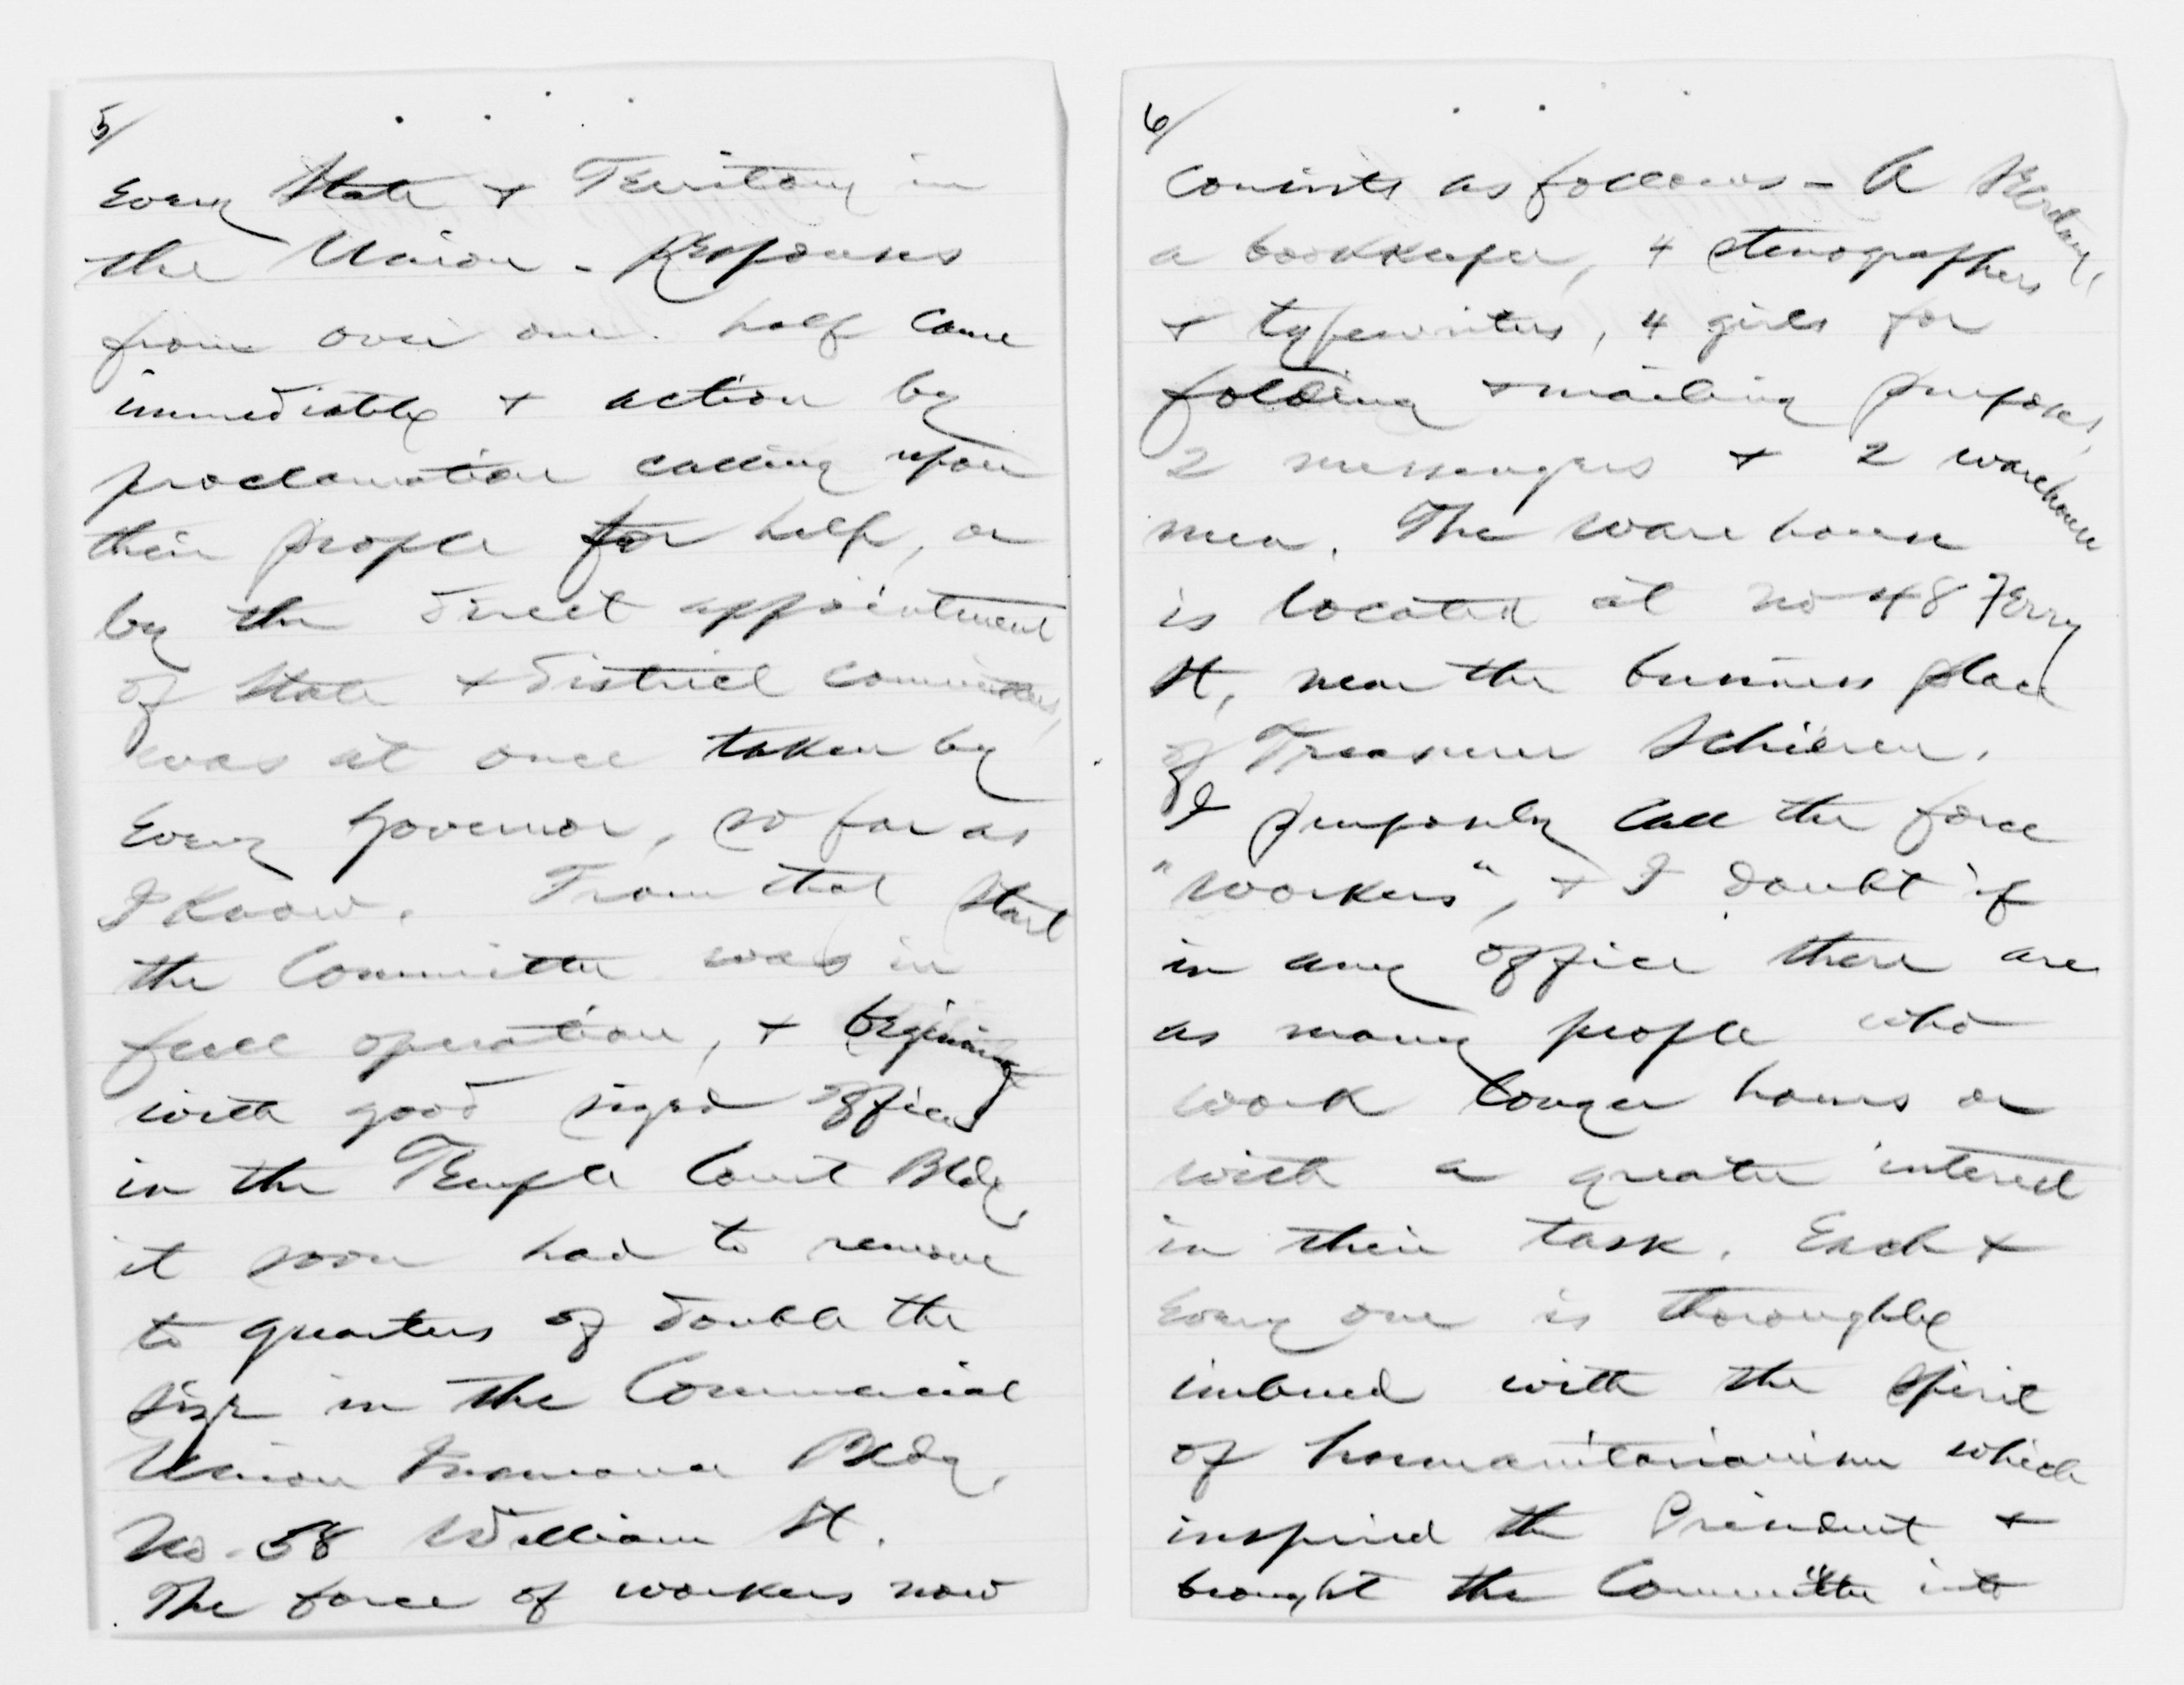 5/
Every State & Territory in
the Union - Responses
from over one half came
immediately & action by
proclamation calling upon
their people for help, or
by the direct appointment
of State & district committees,
was at once taken by
Every Governor, so far as
I Know. From that start
the Committee was in
full operation, & begining
with good sized offices
in the Temple Court Bldg,
it soon had to remove
to quarters of double the
size in the Commercial
Union Insurance Bldg,
No. 58 William St.
The force of workers now
6/
Consists as follows - A Secretary,
a bookkeeper, 4 stenographers
& typewriters, 4 girls for
folding & mailing purposes,
2 messengers & 2 warehouse
men. The warehouse
is located at no 48 Ferry
St, near the business place
of Treasurer Schieren.
I purposely call the force
"workers", & I doubt if
in any office there are
as many people who
work longer hours or
with a greater interest
in their task. Each &
Every one is thoroughly
imbued with the spirit
of humanitarianism which
inspired the President &
brought the Committee into